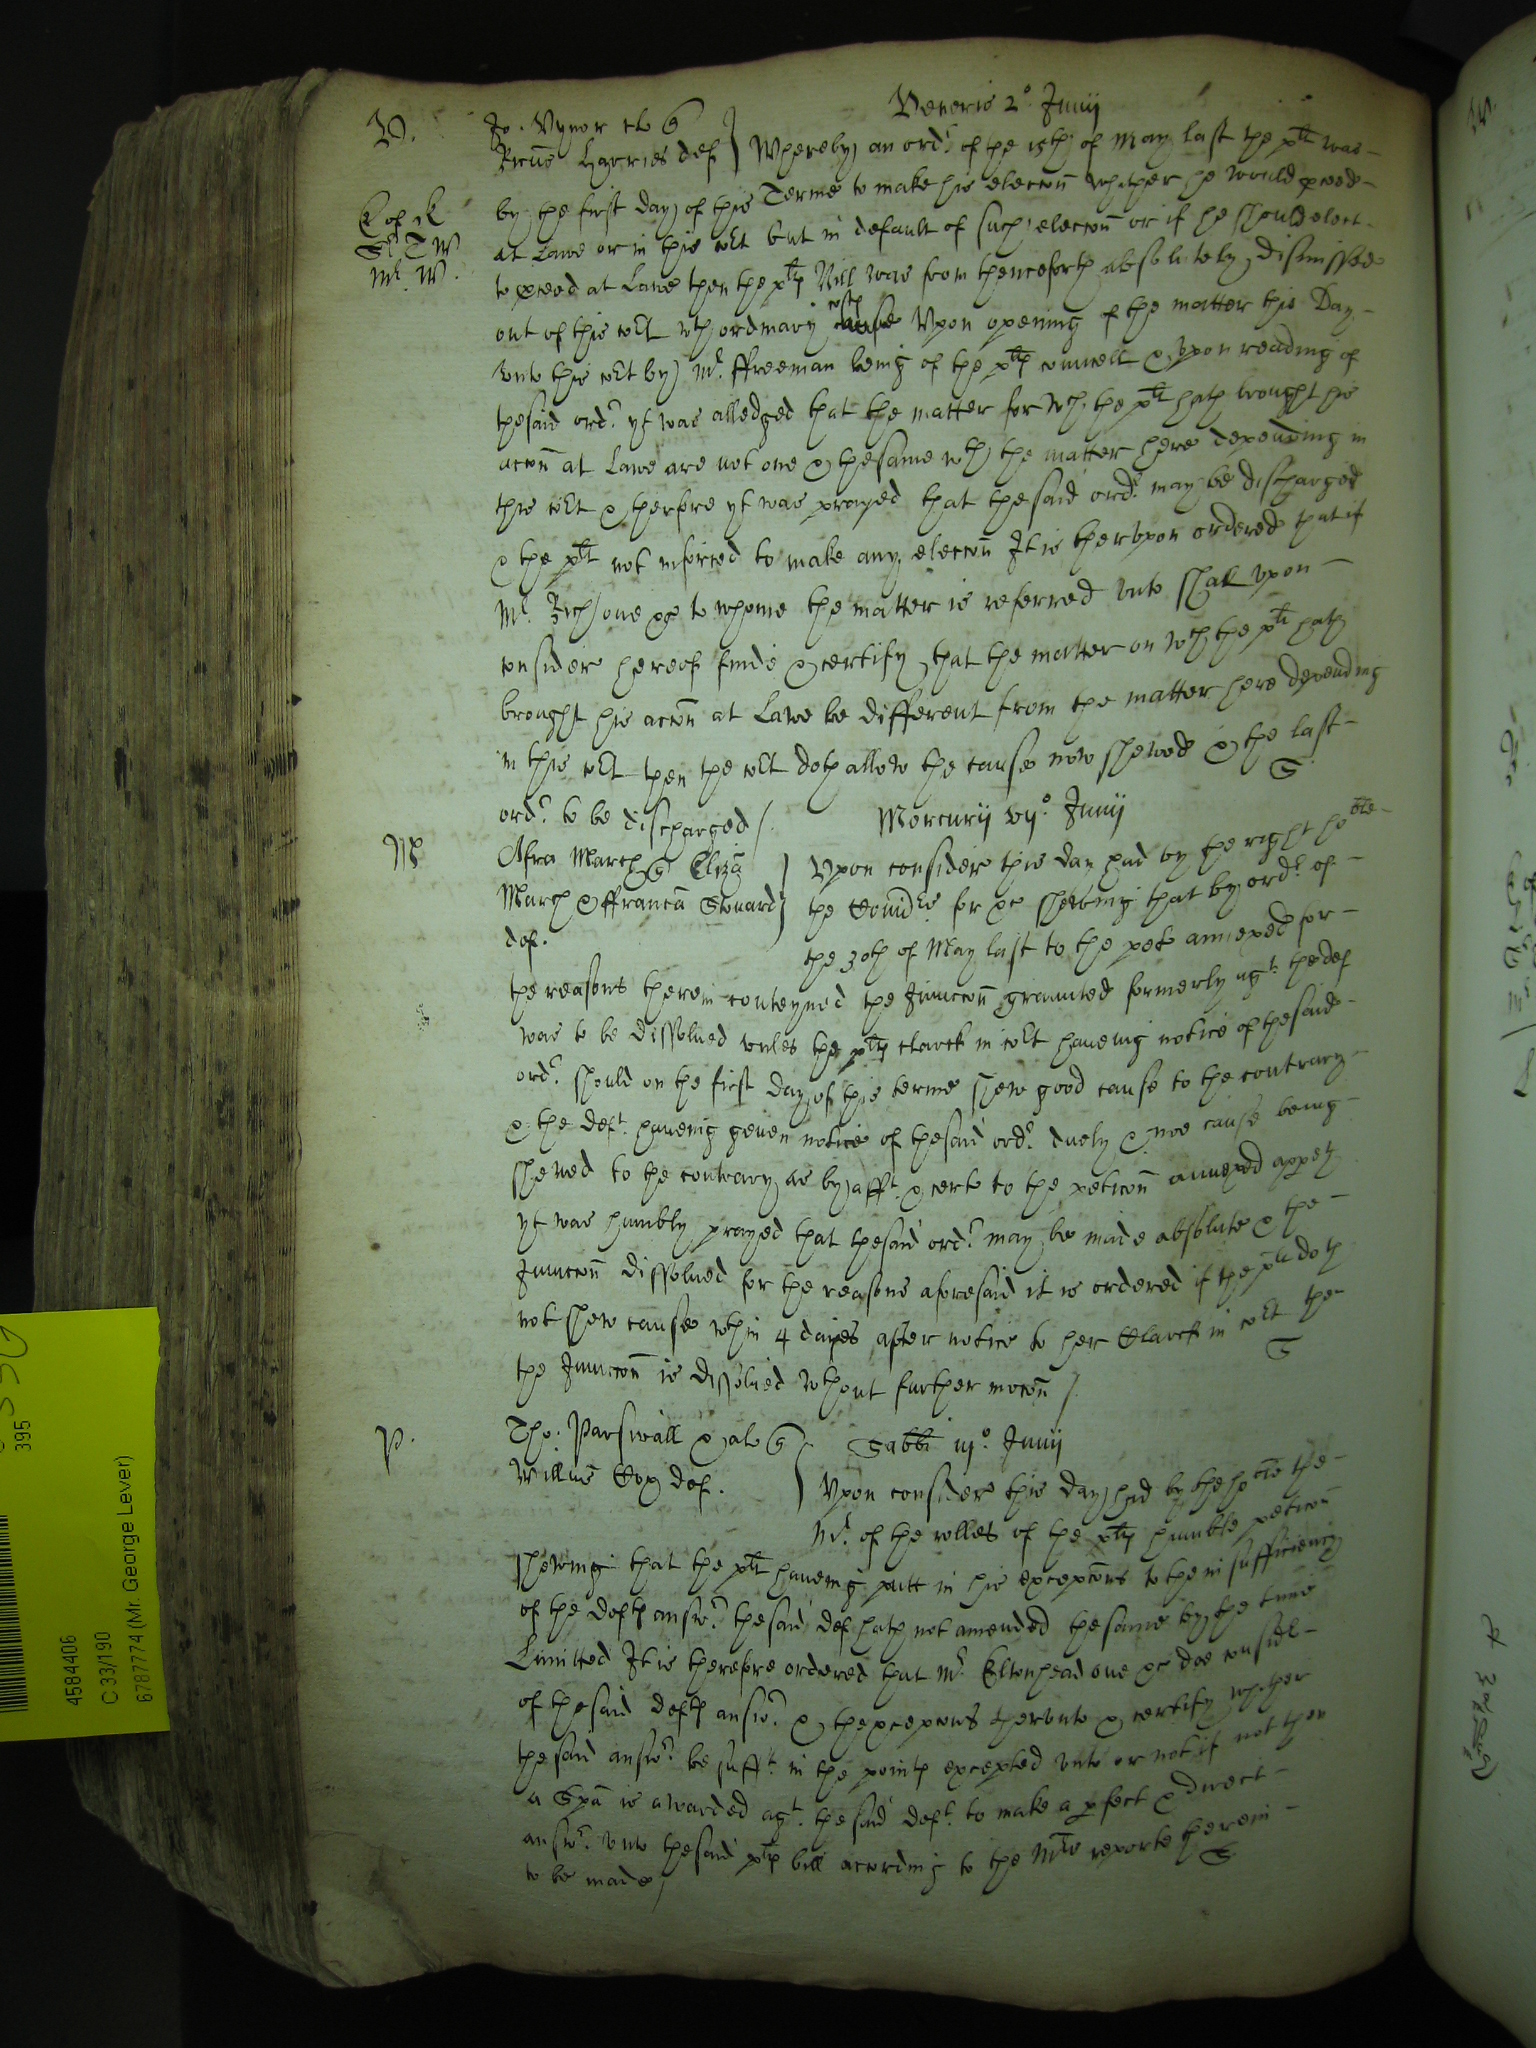 Veneris 2º Junij
V. Jo. Vynor cl q
Ricus Harries def Whereby an ordr of the 15th of May last the plt was
by the first day of this Terme to make his eleccon whither he would pceed
M of R
Sr T W
Mr. W.
at Lawe or in this Cort but in default of such eleccon or if he should elect
to pceed at Lawe then the plts Bill was from thenceforth absolutely dismissed
out of this Cort wth ordinary costs Upon opening of the matter this Day
unto this Cort by Mr. ffreeman being of the plts councell & upon reading of
the said ordr yt was alledged that the matter for wch the plt hath brought his
accon at Lawe are not one & the same wth the matter here depending in
this Cort & therfore yt was prayed that the said ordr may be discharged
& the plt not inforced to make any eleccon It is therupon ordered that if
Mr. Rich one &c to whome the matter is referred unto shall upon
consider hereof finde & certify that the matter on wch the plt hath
brought his accon at Lawe be different from the matter here depending
in this Cort then the Cort doth allow the cause now shewed & the last
ordr to be discharged /. S
Mercurij vijº Junij
M Afra March q Eliza
March & ffranca Steward
def.
Upon consider this day had by the right hoble
the Comrs for &c shewing that by ordr of
the 30th of May last to the peto annexed for
the reasons therein conteyned the Junccon graunted formerly agt the def
was to be dissolved unles the plts clarck in Cort haveing notice of the said
ordr should on the first day of this terme shew good cause to the contrary
& the deft haveing geven notice of the said ordr duely & noe cause being
shewed to the contrary as by afft & certe to the peticon annexed appeth
yt was humbly prayed that the said ordr may be made absolute & the
Junccon dissolved for the reasons aforesaid it is ordered if the plt doth
not shew cause wthin 4 dayes after notice to her Clarck in Cort the
the Junccon is dissolved wthout further mocon /. S
P. Tho: Parswall & al q
Willus Cox def.
Sabbi iijº Junij
Upon consider this day had by the hoble the
Mr of the rolles of the plts humble peticon
shewing that the plt haveing putt in his excepcons to the insufficiency
of the defts answr the said def hath not amended the same by the time
Limitted It is therefore ordered that Mr Eltonhead one &c doe consider
of the said defts answr & the excepcons therunto & certify whither
the said answr be sufft in the points excepted unto or not if not then
a Spa is awarded agt the said deft to make a pfect & direct
answr unto the said plts bill according to the Mrs reporte therein
to be made / S
395
4584406
C 33/190
6787774 (Mr. George Lever)